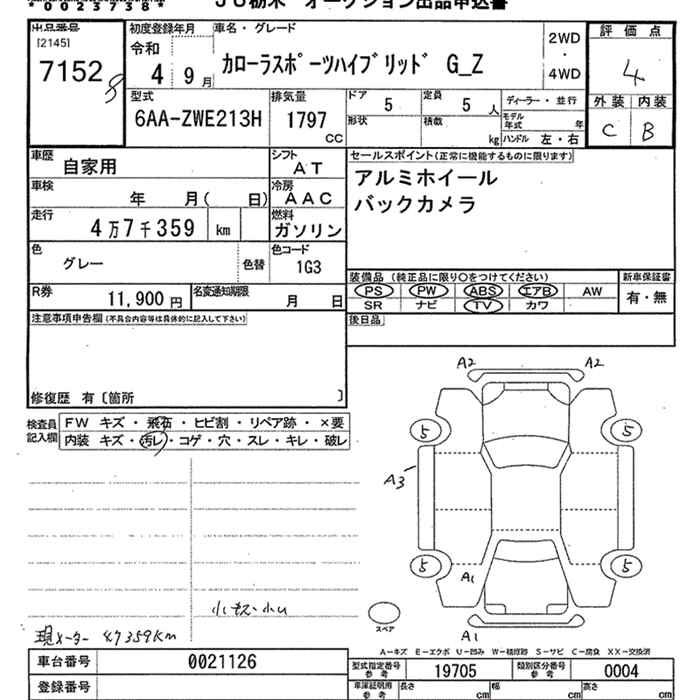 *0023738*
JU栃木 オークション出品申込書
出品番号
[2145]
7152
初度登録年月
令和
4 9月
車名・グレード
カローラスポーツハイブリッド G_Z
2WD
・
4WD
評価点
4
外装 内装
C B
型式
6AA-ZWE213H
排気量
1797
CC
ドア
5
定員
5 人
形状
積載
kg
ディーラー・並行
モデル年式 年
ハンドル 左・右
車歴
自家用
シフト
AT
車検
年 月( 日)
冷房
AAC
走行
4万7千359 km
燃料
ガソリン
色
グレー
色替
色コード
1G3
R券
11,900 円
名変通知期限
月 日
セールスポイント(正常に機能するものに限ります)
アルミホイール
バックカメラ
装備品 (純正品に限り○をつけてください)
PS PW ABS エアB AW
SR ナビ TV カワ
新車保証書
有・無
後日品
注意事項申告欄(不具合内容等は具体的に記入して下さい)
修復歴 有〔箇所 〕
検査員記入欄
FW キズ・飛石・ヒビ割・リペア跡・×要
内装 キズ・汚レ・コゲ・穴・スレ・キレ・破レ
A2 A2
5 5
A3
5 5
A1
A1
スペア
現メーター 47359KM
A-キズ E-エクボ U-凹み W-補修跡 S-サビ C-腐食 XX-交換済
車台番号
0021126
登録番号
型式指定番号
参考
19705
類別区分番号
参考
0004
車庫証明用
参考
長さ cm
幅 cm
高さ cm